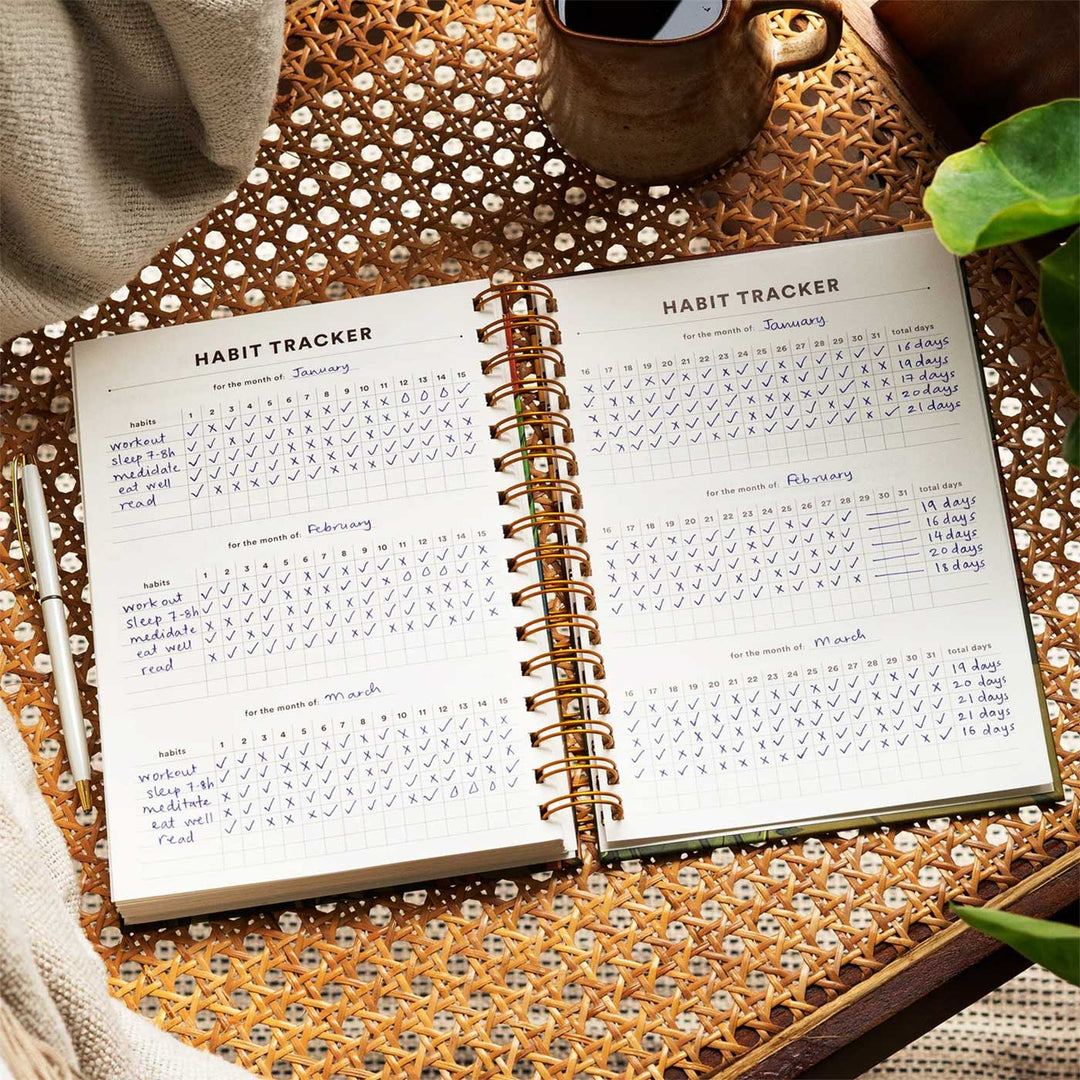 HABIT TRACKER
for the month of: January
habits 1 2 3 4 5 6 7 8 9 10 11 12 13 14 15
workout
sleep 7-8h
medidate
eat well
read
for the month of: February
habits 1 2 3 4 5 6 7 8 9 10 11 12 13 14 15
work out
sleep 7-8h
medidate
eat well
read
for the month of: march
habits 1 2 3 4 5 6 7 8 9 10 11 12 13 14 15
workout
sleep 7-8h
meditate
eat well
read
HABIT TRACKER
for the month of: January
16 17 18 19 20 21 22 23 24 25 26 27 28 29 30 31 total days
16 days
19 days
17 days
20 days
21 days
for the month of: February
16 17 18 19 20 21 22 23 24 25 26 27 28 29 30 31 total days
19 days
16 days
14 days
20 days
18 days
for the month of: march
16 17 18 19 20 21 22 23 24 25 26 27 28 29 30 31 total days
19 days
20 days
21 days
21 days
16 days